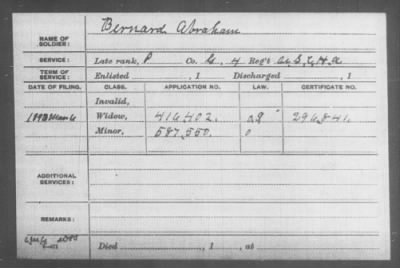 NAME OF SOLDIER: Bernard Abraham
SERVICE: Late rank, P Co. G, 4 Reg't
TERM OF SERVICE: Enlisted , 1 Discharged , 1
DATE OF FILING. CLASS. APPLICATION NO. LAW. CERTIFICATE NO.
Invalid,
Widow, 416,402.
Minor, 587,550.
ADDITIONAL SERVICES:
REMARKS:
Died , 1 , at